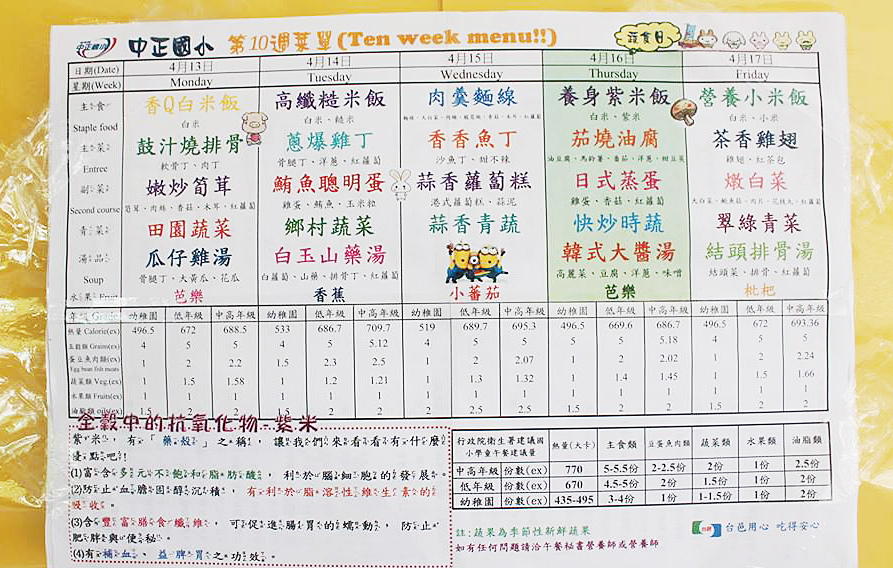 中正國小 中正國小 第10週菜單(Ten week menu!!) 蔬食日
日期(Date) 4月13日 4月14日 4月15日 4月16日 4月17日
星期(Week) Monday Tuesday Wednesday Thursday Friday
主食 香Q白米飯 高纖糙米飯 肉羹麵線 養身紫米飯 營養小米飯
Staple food 白米 白米、糙米 白米、紫米 白米、小米
主菜 鼓汁燒排骨 蔥爆雞丁 香香魚丁 茄燒油腐 茶香雞翅
Entree 軟骨丁、肉丁 骨腿丁、洋蔥、紅蘿蔔 沙魚丁、甜不辣 雞翅、紅茶包
副菜 嫩炒筍茸 鮪魚聰明蛋 蒜香蘿蔔糕 日式蒸蛋 燉白菜
Second course 筍茸、肉絲、香菇、木耳、紅蘿蔔 雞蛋、鮪魚、玉米粒 港式蘿蔔糕、蒜泥 雞蛋、香菇、紅蘿蔔
青菜 田園蔬菜 鄉村蔬菜 蒜香青蔬 快炒時蔬 翠綠青菜
湯品 瓜仔雞湯 白玉山藥湯 韓式大醬湯 結頭排骨湯
Soup 骨腿丁、大黃瓜、花瓜 白蘿蔔、山藥、排骨丁、紅蘿蔔 高麗菜、豆腐、洋蔥、味噌 結頭菜、排骨、紅蘿蔔
水果 Fruit 芭樂 香蕉 小蕃茄 芭樂 枇杷
年級 Grade 幼稚園 低年級 中高年級 幼稚園 低年級 中高年級 幼稚園 低年級 中高年級 幼稚園 低年級 中高年級 幼稚園 低年級 中高年級
熱量 Calorie(ex) 496.5 672 688.5 533 686.7 709.7 519 689.7 695.3 496.5 669.6 686.7 496.5 672 693.36
五穀類 Grains(ex) 4 5 5 4 5 5.12 4 5 5 4 5 5.18 4 5 5
蛋豆魚肉類(ex) 1 2 2.2 1.5 2.3 2.5 1 2 2.07 1 2 2.02 1 2 2.24
Egg bean fish meats
蔬菜類 Veg.(ex) 1 1.5 1.58 1 1.2 1.21 1 1.3 1.32 1 1.4 1.45 1 1.5 1.66
水果類 Fruits(ex) 1 1 1 1 1 1 1 1 1 1 1 1 1 1 1
油脂類 oils(ex) 1.5 2 2 1.5 2 2 2 2.5 2.5 1.5 2 2 1.5 2 2
全穀中的抗氧化物-紫米
紫米，有「藥穀」之稱，讓我們來看看有什麼
優點吧!
(1)富含多元不飽和脂肪酸，利於腦細胞的發展。
(2)防止血膽固醇沉積，有利於脂溶性維生素的
吸收。
(3)含豐富膳食纖維，可促進腸胃的蠕動，防止
肥胖與便秘。
(4)有補血、益脾胃之功效。
行政院衛生署建議國小學童午餐建議量 熱量(大卡) 主食類 豆蛋魚肉類 蔬菜類 水果類 油脂類
中高年級 份數(ex) 770 5-5.5份 2-2.5份 2份 1份 2.5份
低年級 份數(ex) 670 4.5-5份 2份 1.5份 1份 2份
幼稚園 份數(ex) 435-495 3-4份 1份 1-1.5份 1份 2份
註:蔬果為季節性新鮮蔬果
如有任何問題請洽午餐秘書營養師或營養師
台邑用心 吃得安心